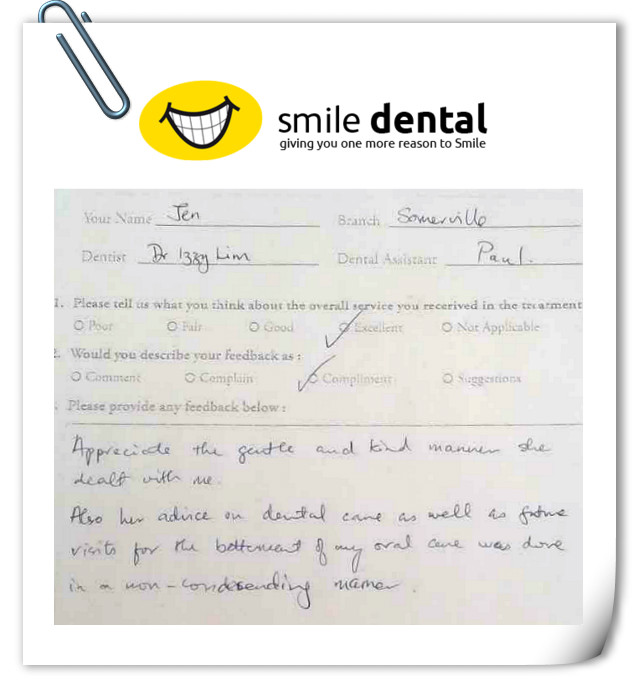 smile dental
giving you one more reason to Smile
Your Name Jen Branch Somerville
Dentist Dr Izzy Lim Dental Assistant Paul.
1. Please tell us what you think about the overall service you recerived in the treatment
Poor Fair Good Excellent Not Applicable
2. Would you describe your feedback as :
Comment Complain Compliment Suggestions
Please provide any feedback below :
Appreciate the gentle and kind manner she
dealt with me.
Also her advice on dental care as well as future
visits for the betterment of my oral care was done
in a non-condesending manner.